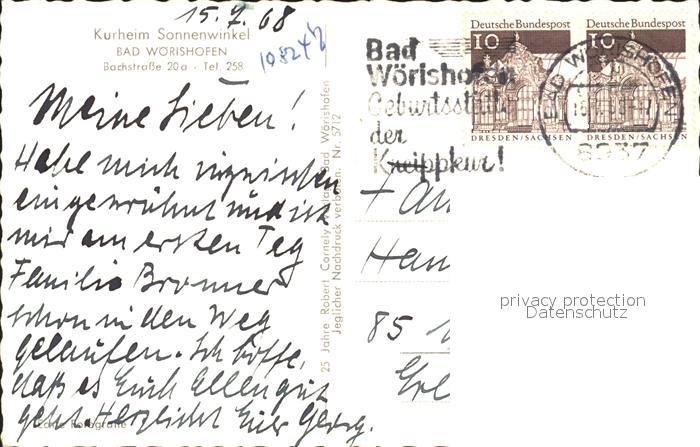 15.7.68
Kurheim Sonnenwinkel
BAD WÖRISHOFEN
Bachstraße 20a · Tel. 258
Meine Lieben!
Habe mich inzwischen
eingewöhnt und ist
mir am ersten Tag
Familie Bronner
schon in den Weg
gelaufen. Ich hoffe,
daß es Euch Allen gut
geht. Herzlichst Euer Georg.
Echte Fotografie
25 Jahre Robert Cornely Verlag Bad Wörishofen
Jeglicher Nachdruck verboten. Nr. 57/2
Bad
Wörishofen
Geburtsstätte
der
Kneippkur!
Deutsche Bundespost
10
DRESDEN/SACHSEN
Deutsche Bundespost
10
DRESDEN/SACHSEN
BAD WÖRISHOFEN
8937
Fam
Han
85
privacy protection
Datenschutz